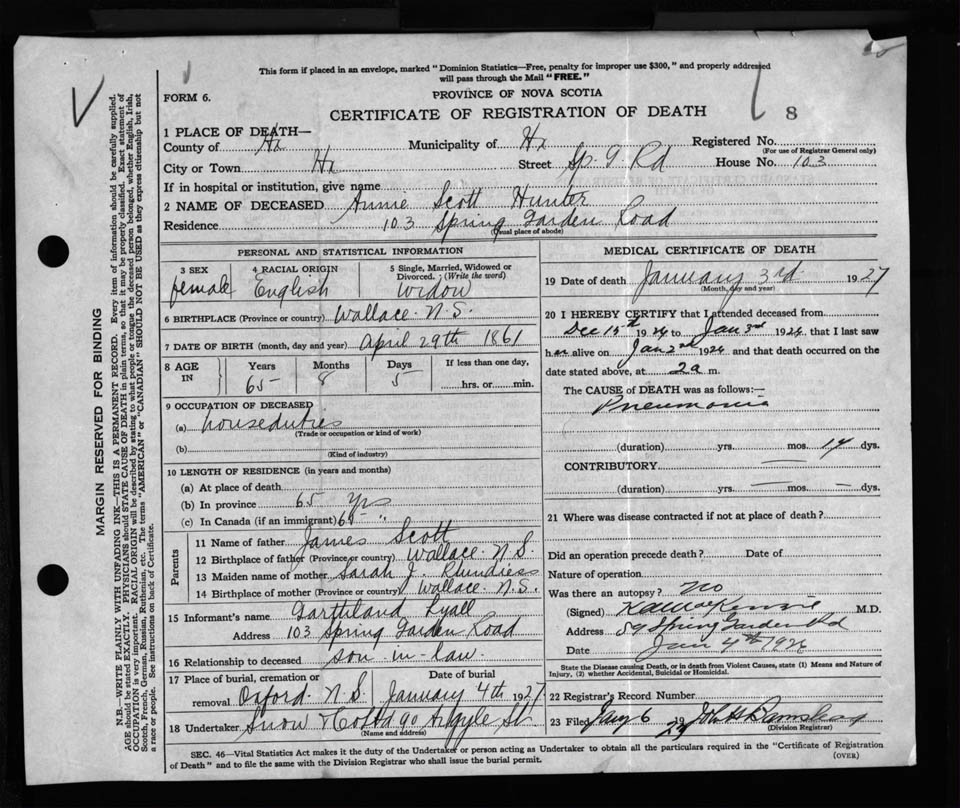 This form if placed in an envelope, marked "Dominion Statistics—Free, penalty for improper use $300," and properly addressed
will pass through the Mail "FREE."
FORM 6.
PROVINCE OF NOVA SCOTIA
CERTIFICATE OF REGISTRATION OF DEATH
8
1 PLACE OF DEATH—
County of Hx Municipality of Hx Registered No.
(For use of Registrar General only)
City or Town Hx Street Sp. G Rd House No. 103
If in hospital or institution, give name
2 NAME OF DECEASED Annie Scott Hunter
Residence 103 Spring Garden Road
(Usual place of abode)
PERSONAL AND STATISTICAL INFORMATION
3 SEX female
4 RACIAL ORIGIN English
5 Single, Married, Widowed or
Divorced.: (Write the word)
widow
6 BIRTHPLACE (Province or country) Wallace N.S.
7 DATE OF BIRTH (month, day and year) April 29th 1861
8 AGE IN
Years 65
Months 8
Days 5
If less than one day,
hrs. or min.
9 OCCUPATION OF DECEASED
(a) houseduties
(Trade or occupation or kind of work)
(b)
(Kind of industry)
10 LENGTH OF RESIDENCE (in years and months)
(a) At place of death
(b) In province 65 yrs
(c) In Canada (if an immigrant) 65 "
Parents
11 Name of father James Scott
12 Birthplace of father (Province or country) Wallace N.S.
13 Maiden name of mother Sarah J.
14 Birthplace of mother (Province or country) Wallace N.S.
15 Informant's name Lyall
Address 103 Spring Garden Road
16 Relationship to deceased son-in-law
17 Place of burial, cremation or
removal Oxford N.S.
Date of burial
January 4th 1927
18 Undertaker Snow & Co Ltd 90 Argyle St
(Name and address)
MEDICAL CERTIFICATE OF DEATH
19 Date of death January 3rd 1927
(Month, day and year)
20 I HEREBY CERTIFY that I attended deceased from
Dec 15th 1926 to Jan 3rd 1926, that I last saw
her alive on Jan 2nd 1926 and that death occurred on the
date stated above, at 2a m.
The CAUSE of DEATH was as follows:—
Pneumonia
(duration) yrs. mos. 14 dys.
CONTRIBUTORY
(duration) yrs. mos. dys.
21 Where was disease contracted if not at place of death?
Did an operation precede death? Date of
Nature of operation
Was there an autopsy? no
(Signed) MacKenzie M.D.
Address 59 Spring Garden Rd
Date Jan 4th 1926
State the Disease causing Death, or in death from Violent Causes, state (1) Means and Nature of
Injury, (2) whether Accidental, Suicidal or Homicidal.
22 Registrar's Record Number
23 Filed Jany 6 John H
(Division Registrar)
SEC. 46—Vital Statistics Act makes it the duty of the Undertaker or person acting as Undertaker to obtain all the particulars required in the "Certificate of Registration
of Death" and to file the same with the Division Registrar who shall issue the burial permit.
(OVER)
MARGIN RESERVED FOR BINDING
N.B.—WRITE PLAINLY WITH UNFADING INK—THIS IS A PERMANENT RECORD. Every item of information should be carefully supplied.
AGE should be stated EXACTLY. PHYSICIANS should STATE CAUSE OF DEATH in plain terms, so that it may be properly classified. Exact statement of
OCCUPATION is very important. RACIAL ORIGIN will be described by stating to what people or tongue the deceased person belonged, whether English, Irish,
Scotch, French, German, Russian, Ruthenian, etc. The terms "AMERICAN" or "CANADIAN" SHOULD NOT BE USED as they express citizenship but not
a race or people. See instructions on back of Certificate.